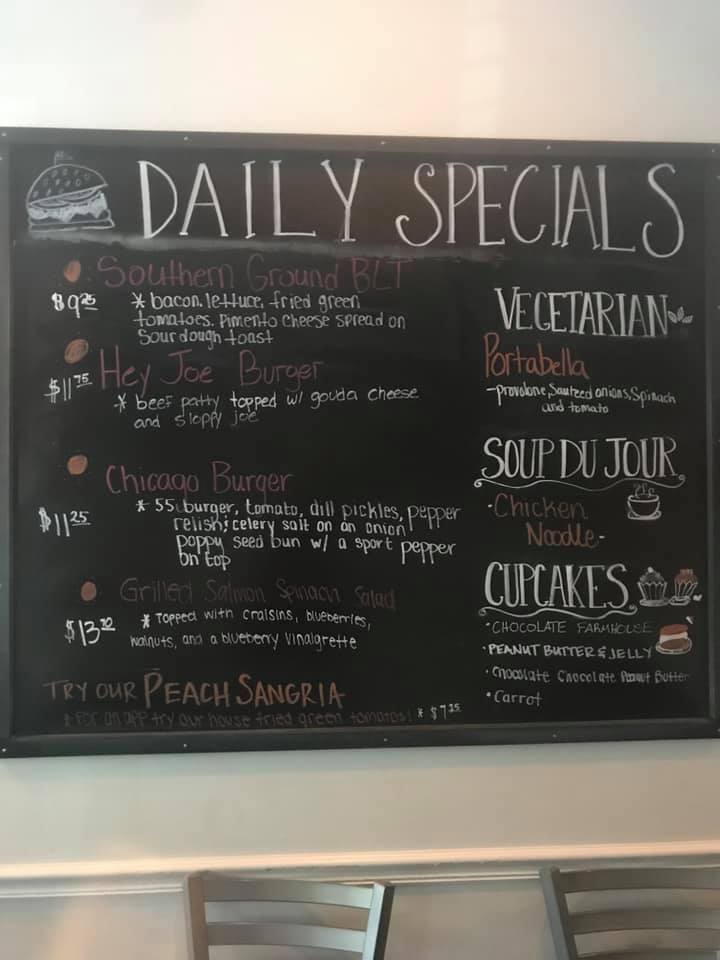 DAILY SPECIALS
Southern Ground BLT
$9.25
* bacon, lettuce, fried green
tomatoes, Pimento Cheese spread on
Sourdough toast
Hey Joe Burger
$11.75
* beef patty topped w/ gouda cheese
and sloppy joe
Chicago Burger
$11.25
* 55 burger, tomato, dill pickles, pepper
relish, celery salt on an onion
poppy seed bun w/ a sport pepper
on top
Grilled Salmon Spinach Salad
* Topped with craisins, blueberries,
walnuts, and a blueberry vinaigrette
TRY OUR PEACH SANGRIA
* FOR an APP try our house fried green tomatoes! * $7.25
VEGETARIAN
Portabella
-provolone, Sauteed onions, Spinach
and tomato
SOUP DU JOUR
-Chicken
Noodle-
CUPCAKES
• CHOCOLATE FARMHOUSE
• PEANUT BUTTER & JELLY
• Chocolate Chocolate Peanut Butter
• Carrot